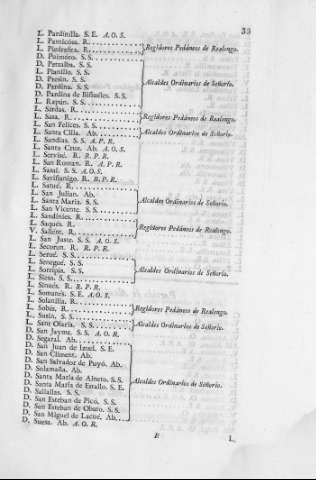 33
L. Pardinilla. S. E. A. O. S.
L. Parnicosa. R.
L. Piedrafita. R. Regidores Pedáneos de Realengo.
D. Poiméno. S. S.
D. Petralba. S. S.
L. Planillo. S. S.
D. Presin. S. S. Alcaldes Ordinarios de Señorío.
D. Pardina. S. S.
D. Pardina de Bisuelles. S. S.
L. Rapún. S. S.
L. Sardas. R.
L. Sasa. R. Regidores Pedáneos de Realengo.
L. San Felices. S. S.
L. Santa Cilia. Ab. Alcaldes Ordinarios de Señorío.
L. Sandias. S. S. A. P. R.
L. Santa Cruz. Ab. A. O. S.
L. Servisé. R. R. P. R.
L. San Roman. R. A. P. R.
L. Sasal. S. S. A. O. S.
L. Saviñanigo. R. R. P. R.
L. Satué. R.
L. San Julian. Ab.
L. Santa María. S. S. Alcaldes Ordinarios de Señorío.
L. San Vicente. S. S.
L. Sandinies. R.
L. Saqués. R. Regidores Pedáneos de Realengo.
V. Sallent. R.
L. San Juste. S. S. A. O. S.
L. Secorun. R. R. P. R.
L. Serué. S. S.
L. Senegué. S. S.
L. Sorripas. S. S. Alcaldes Ordinarios de Señorío.
L. Siesa. S. S.
L. Sinués. R. R. P. R.
L. Somanés. S. E. A. O. S.
L. Solanilla. R.
L. Sobás. R. Regidores Pedáneos de Realengo.
L. Susin. S. S.
L. Sant Olaria. S. S. Alcaldes Ordinarios de Señorío.
D. San Jayme. S. S. A. O. R.
D. Segaral. Ab.
D. San Juan de Izuel. S. E.
D. San Climent. Ab.
D. San Salvador de Puyó. Ab.
D. Solamaña. Ab.
D. Santa María de Alneto. S. S.
D. Santa María de Estallo. S. E. Alcaldes Ordinarios de Señorío.
D. Sallallas. S. S.
D. San Esteban de Picó. S. S.
D. San Esteban de Obaro. S. S.
D. San Miguel de Lacué. Ab.
D. Suesa. Ab. A. O. R.
E L.